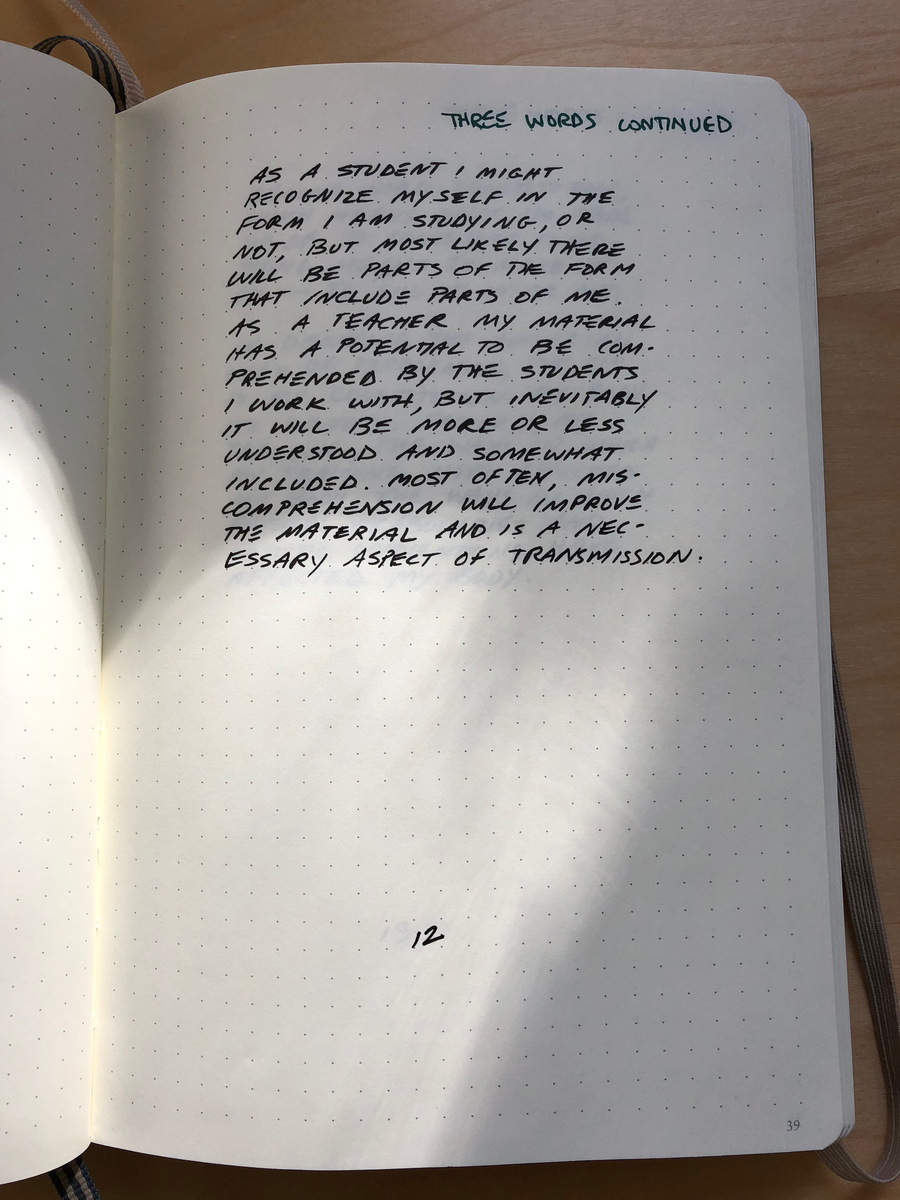 THREE WORDS CONTINUED
AS A STUDENT I MIGHT
RECOGNIZE MYSELF IN THE
FORM I AM STUDYING, OR
NOT, BUT MOST LIKELY THERE
WILL BE PARTS OF THE FORM
THAT INCLUDE PARTS OF ME.
AS A TEACHER MY MATERIAL
HAS A POTENTIAL TO BE COM-
PREHENDED BY THE STUDENTS
I WORK WITH, BUT INEVITABLY
IT WILL BE MORE OR LESS
UNDERSTOOD AND SOMEWHAT
INCLUDED. MOST OFTEN, MIS-
COMPREHENSION WILL IMPROVE
THE MATERIAL AND IS A NEC-
ESSARY ASPECT OF TRANSMISSION.
12
39